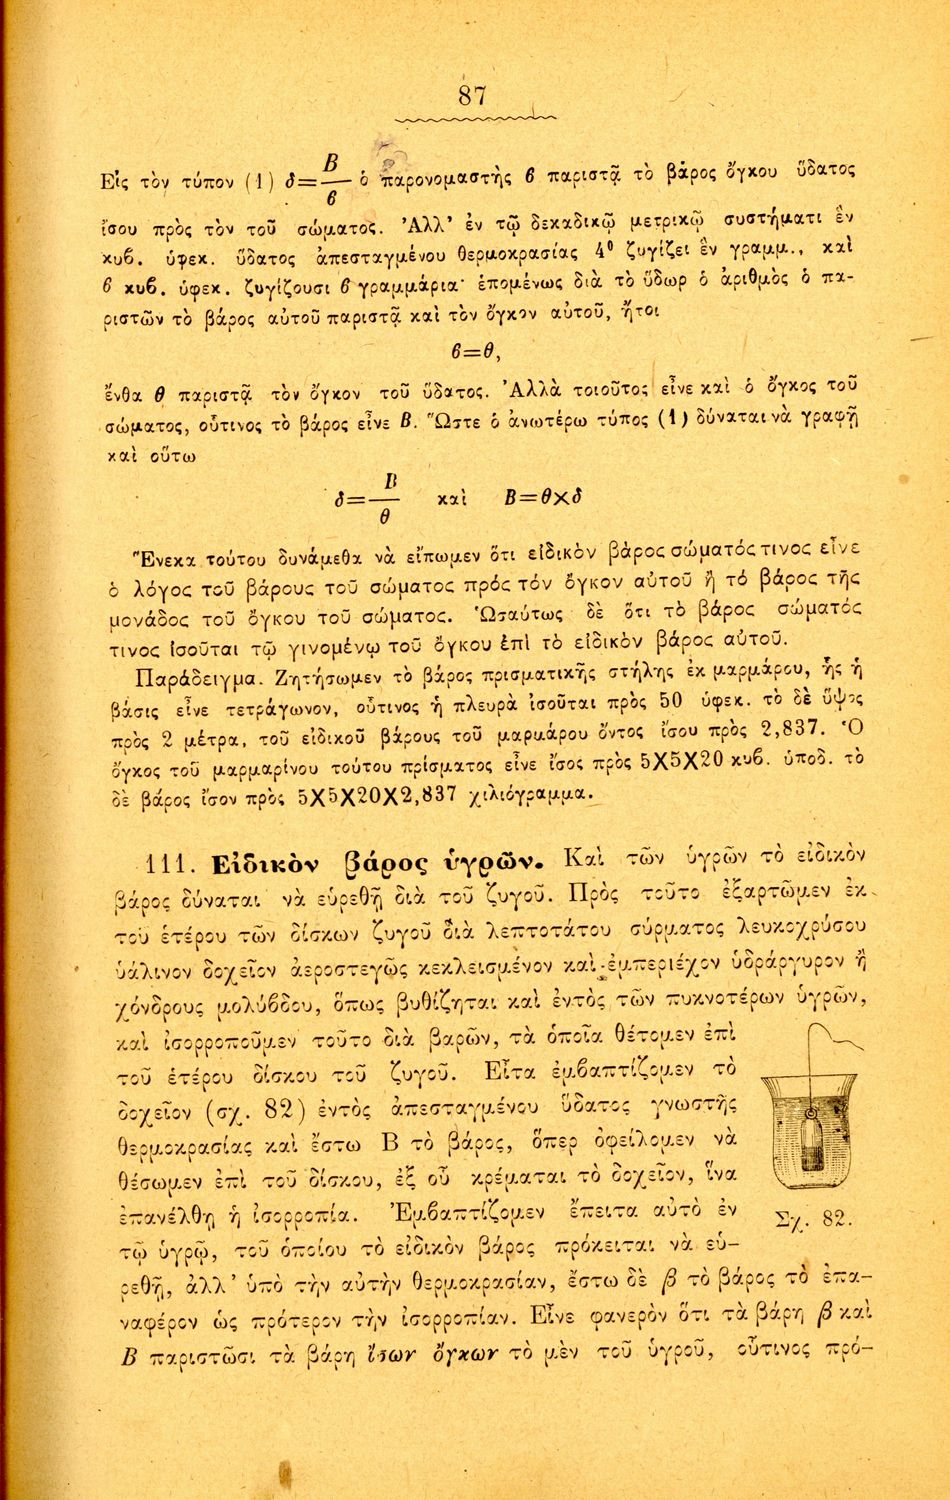 87
Εἰς τὸν τύπον (1) δ=Β/ϐ ὁ παρονομαστὴς ϐ παριστᾷ τὸ βάρος ὄγκου ὕδατος
ἴσου πρὸς τὸν τοῦ σώματος. Ἀλλ' ἐν τῷ δεκαδικῷ μετρικῷ συστήματι ἓν
κυϐ. ὑφεκ. ὕδατος ἀπεσταγμένου θερμοκρασίας 4⁰ ζυγίζει ἓν γραμμ., καὶ
ϐ κυϐ. ὑφεκ. ζυγίζουσι ϐ γραμμάρια· ἑπομένως διὰ τὸ ὕδωρ ὁ ἀριθμὸς ὁ πα-
ριστῶν τὸ βάρος αὐτοῦ παριστᾷ καὶ τὸν ὄγκον αὐτοῦ, ἤτοι
ϐ=θ,
ἔνθα θ παριστᾷ τὸν ὄγκον τοῦ ὕδατος. Ἀλλὰ τοιοῦτος εἶνε καὶ ὁ ὄγκος τοῦ
σώματος, οὗτινος τὸ βάρος εἶνε Β. Ὥστε ὁ ἀνωτέρω τύπος (1) δύναται νὰ γραφῇ
καὶ οὕτω
δ=Β/θ καὶ Β=θ×δ
Ἕνεκα τούτου δυνάμεθα νὰ εἴπωμεν ὅτι εἰδικὸν βάρος σώματός τινος εἶνε
ὁ λόγος τοῦ βάρους τοῦ σώματος πρός τόν ὄγκον αὐτοῦ ἢ τό βάρος τῆς
μονάδος τοῦ ὄγκου τοῦ σώματος. Ὡσαύτως δὲ ὅτι τὸ βάρος σώματός
τινος ἰσοῦται τῷ γινομένῳ τοῦ ὄγκου ἐπὶ τὸ εἰδικὸν βάρος αὐτοῦ.
Παράδειγμα. Ζητήσωμεν τὸ βάρος πρισματικῆς στήλης ἐκ μαρμάρου, ἧς ἡ
βάσις εἶνε τετράγωνον, οὗτινος ἡ πλευρὰ ἰσοῦται πρὸς 50 ὑφεκ. τὸ δὲ ὕψος
πρὸς 2 μέτρα, τοῦ εἰδικοῦ βάρους τοῦ μαρμάρου ὄντος ἴσου πρὸς 2,837. Ὁ
ὄγκος τοῦ μαρμαρίνου τούτου πρίσματος εἶνε ἴσος πρὸς 5Χ5Χ20 κυϐ. ὑποδ. τὸ
δὲ βάρος ἴσον πρὸς 5Χ5Χ20Χ2,837 χιλιόγραμμα.
111. Εἰδικὸν βάρος ὑγρῶν. Καὶ τῶν ὑγρῶν τὸ εἰδικὸν
βάρος δύναται νὰ εὑρεθῇ διὰ τοῦ ζυγοῦ. Πρὸς τοῦτο ἐξαρτῶμεν ἐκ
τοῦ ἑτέρου τῶν δίσκων ζυγοῦ διὰ λεπτοτάτου σύρματος λευκοχρύσου
ὑάλινον δοχεῖον ἀεροστεγῶς κεκλεισμένον καὶ ἐμπεριέχον ὑδράργυρον ἢ
χόνδρους μολύϐδου, ὅπως βυθίζηται καὶ ἐντὸς τῶν πυκνοτέρων ὑγρῶν,
καὶ ἰσορροποῦμεν τοῦτο διὰ βαρῶν, τὰ ὁποῖα θέτομεν ἐπὶ
τοῦ ἑτέρου δίσκου τοῦ ζυγοῦ. Εἶτα ἐμϐαπτίζομεν τὸ
δοχεῖον (σχ. 82) ἐντὸς ἀπεσταγμένου ὕδατος γνωστῆς
θερμοκρασίας καὶ ἔστω Β τὸ βάρος, ὅπερ ὀφείλομεν νὰ
θέσωμεν ἐπὶ τοῦ δίσκου, ἐξ οὗ κρέμαται τὸ δοχεῖον, ἵνα
ἐπανέλθῃ ἡ ἰσορροπία. Ἐμϐαπτίζομεν ἔπειτα αὐτὸ ἐν
τῷ ὑγρῷ, τοῦ ὁποίου τὸ εἰδικὸν βάρος πρόκειται νὰ εὑ-
ρεθῇ, ἀλλ' ὑπὸ τὴν αὐτὴν θερμοκρασίαν, ἔστω δὲ β τὸ βάρος τὸ ἐπα-
ναφέρον ὡς πρότερον τὴν ἰσορροπίαν. Εἶνε φανερὸν ὅτι τὰ βάρη β καὶ
Β παριστῶσι τὰ βάρη ἴσων ὄγκων τὸ μὲν τοῦ ὑγροῦ, οὗτινος πρό-
Σχ. 82.